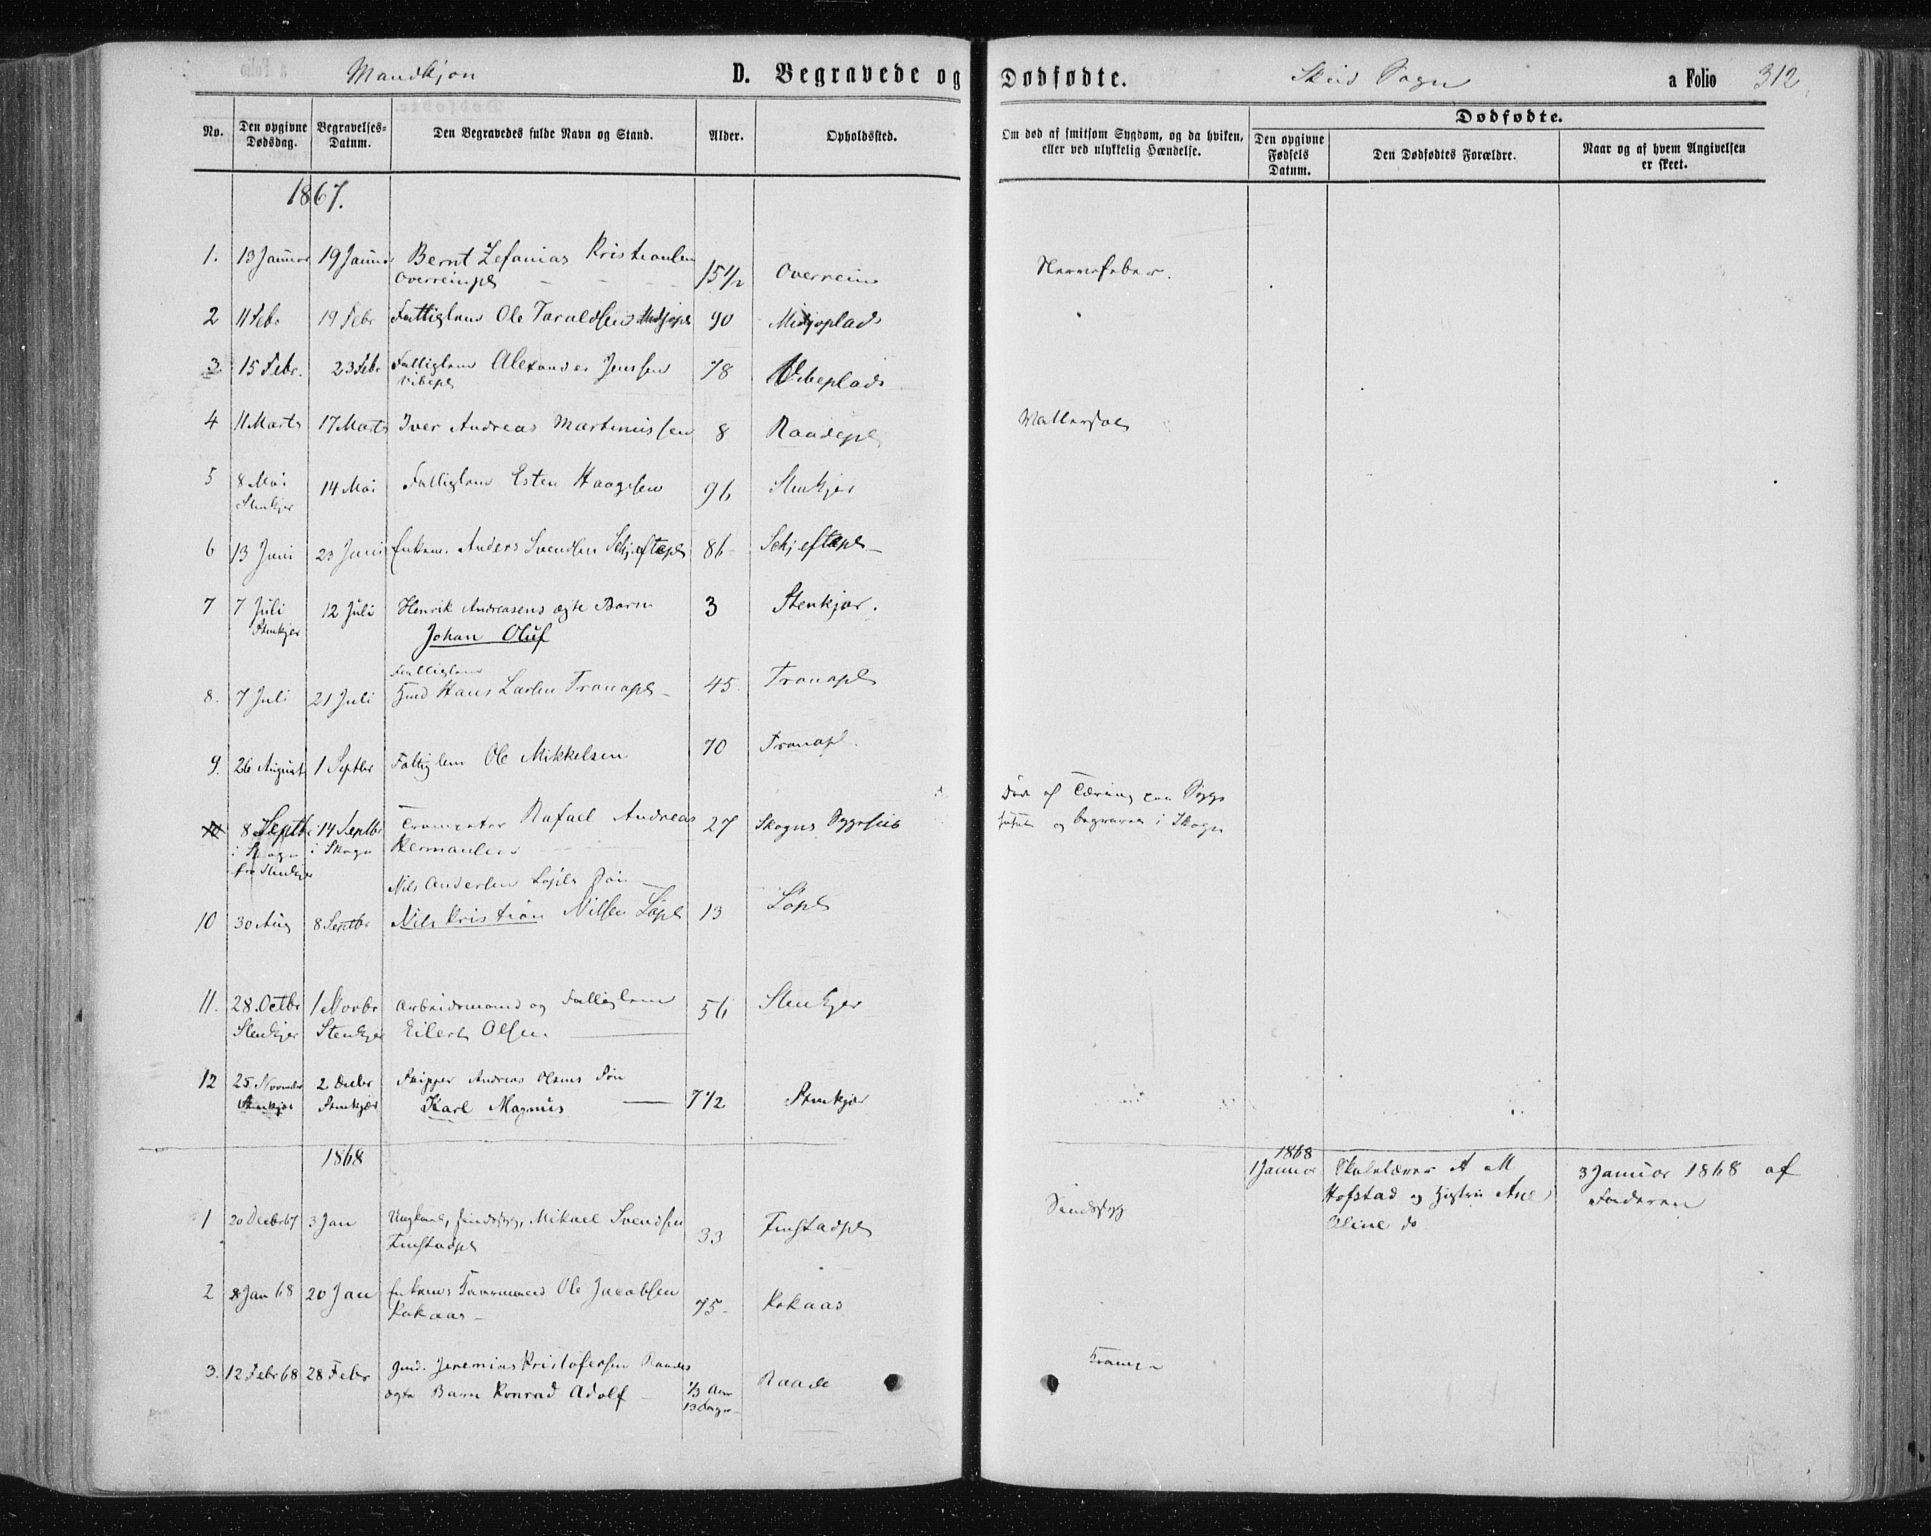 Mandkjøn D. Begravede og Dødfødte. Skeis Sogn a Folio 312
No. Den opgivne Dødsdag. Begravelses-Datum. Den Begravedes fulde Navn og Stand. Alder. Opholdssted. Om død af smitsom Sygdom, og da hvilken, eller ved ulykkelig Hændelse. Dødfødte.
Den opgivne Fødsels Datum. Den Dødfødtes Forældre. Naar og af hvem Angivelsen er skeet.
1867.
1. 13 Januar 19 Januar Bernt Zefanias Kristiansen 15 1/2 Overrein Nervefeber.
Overreinpl
2 11 Febr 19 Febr Fattiglem Ole Taraldsen Midjopl 90 Midjoplads
3 15 Febr. 23 Febr Fattiglem Alexander Jenssen 78 Vibeplads
Vibepl
4 11 Marts 17 Marts Iver Andreas Martinussen 8 Raadepl
5 8 Mai 14 Mai Fattiglem Esten Haagesen 96 Stenkjer
Stenkjer
6 13 Juni 23 Juni Enkem. Anders Svendsen Schjeftepl 86 Schjeftepl
7 7 Juli 12 Juli Henrik Andreasens ægte Barn 3 Stenkjær.
Stenkjer Johan Oluf
Fattiglem
8. 7 Juli 21 Juli Gmd Hans Larsen Tranapl 45. Tranapl
9. 26 August 1 Septbr Fattiglem Ole Mikkelsen 70 Tranapl.
8 Septb 14 Septbr Trompeter Rafael Andreas 27 Skogns Sygehus Død af Tæring paa Syge
i Skogn i Skogn Hermansen huset og begraven i Skogn
fra Stenkjer
Nils Andersen Løpls Søn
10 30 Aug 8 Septbr Nils Kristian Nilsen Løpl 13 Løpl
11. 28. Octbr 1 Novbr Arbeidsmand og Fattiglem 56 Stenkjer
Stenkjer Stenkjer Eilert Olsen
12 25 November 2 Decbr Skipper Andreas Olsens Søn 7 1/2 Stenkjær
Stenkjær Stenkjær Karl Magnus
1868
1868
1 Januar Skolelærer A M 3 Januar 1868 af
Hofstad og Hustru Ane Faderen
Oline do
1 20 Decbr 67 3 Jan Ungkarl, sindssyg, Mikael Svendsen 33 Finstadpl Sindssyg
Finstadpl
2 8 Jan 68 20 Jan Enkem Ole Jacobsen 75 Kokaas
Kokaas
3. 12 Febr 68 28 Febr Gmd. Jeremias Kristofersen Raades 1/3 Aar Raade
ægte Barn Konrad Adolf 13 Dage